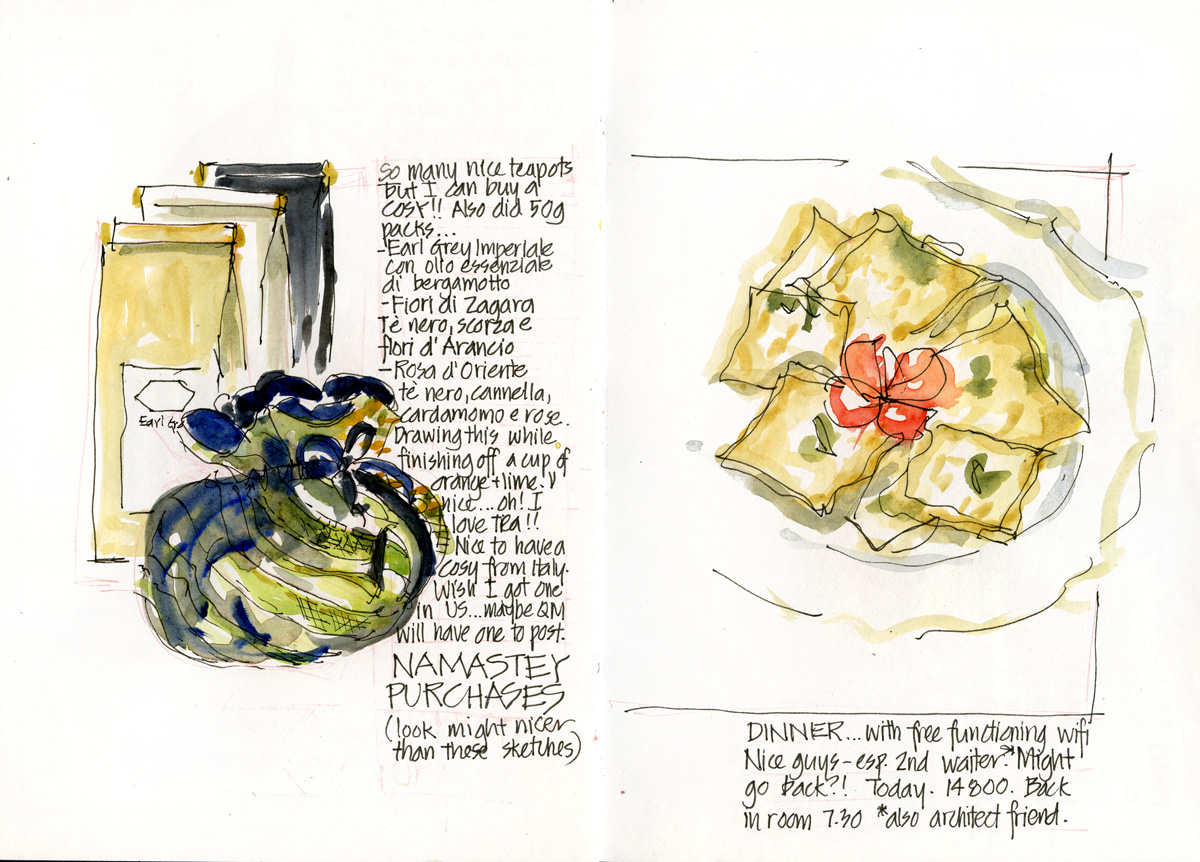 So many nice teapots
but I can buy a
cosy!! Also did 50g
packs...
-Earl Grey Imperiale
con olio essenziale
di bergamotto
-Fiori di Zagara
Tè nero, scorza e
fiori d'Arancio
-Rosa d'Oriente
tè nero, cannella,
cardamomo e rose.
Drawing this while
finishing off a cup of
orange + lime. V
nice... oh! I
love tea!!
Nice to have a
cosy from Italy.
Wish I got one
in US... maybe QM
will have one to post.
NAMASTEY
PURCHASES
(look might nicer
than these sketches)
Earl Gr
DINNER... with free functioning wifi
Nice guys - esp. 2nd waiter.* Might
go back?! Today. 14800. Back
in room 7.30 *also architect friend.